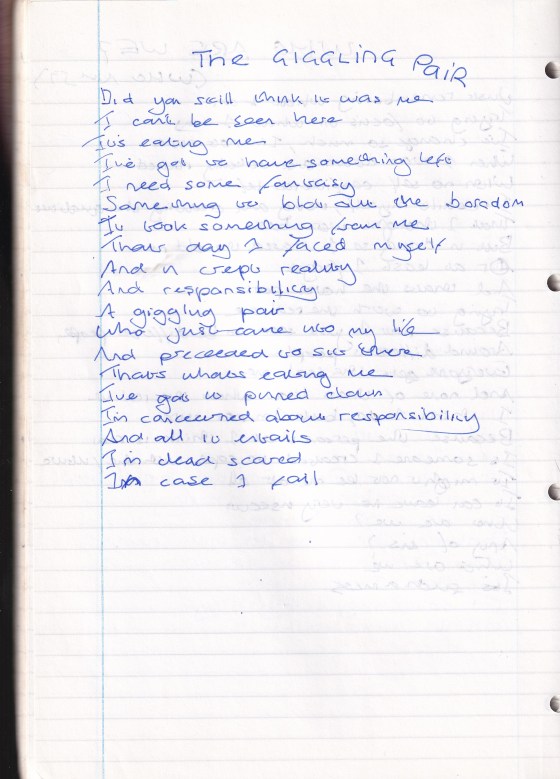 The GIGGLING PAIR
Did you still think it was me
I can't be seen here
It's eating me
I've got to have something left
I need some fantasy
Something to blot out the boredom
It took something from me
That day I faced myself
And in crept reality
And responsibility
A giggling pair
Who just came into my life
And preceeded to sit there
That's what's eating me
I've got it pinned down
I'm concerned about responsibility
And all it entails
I'm dead scared
In case I fail